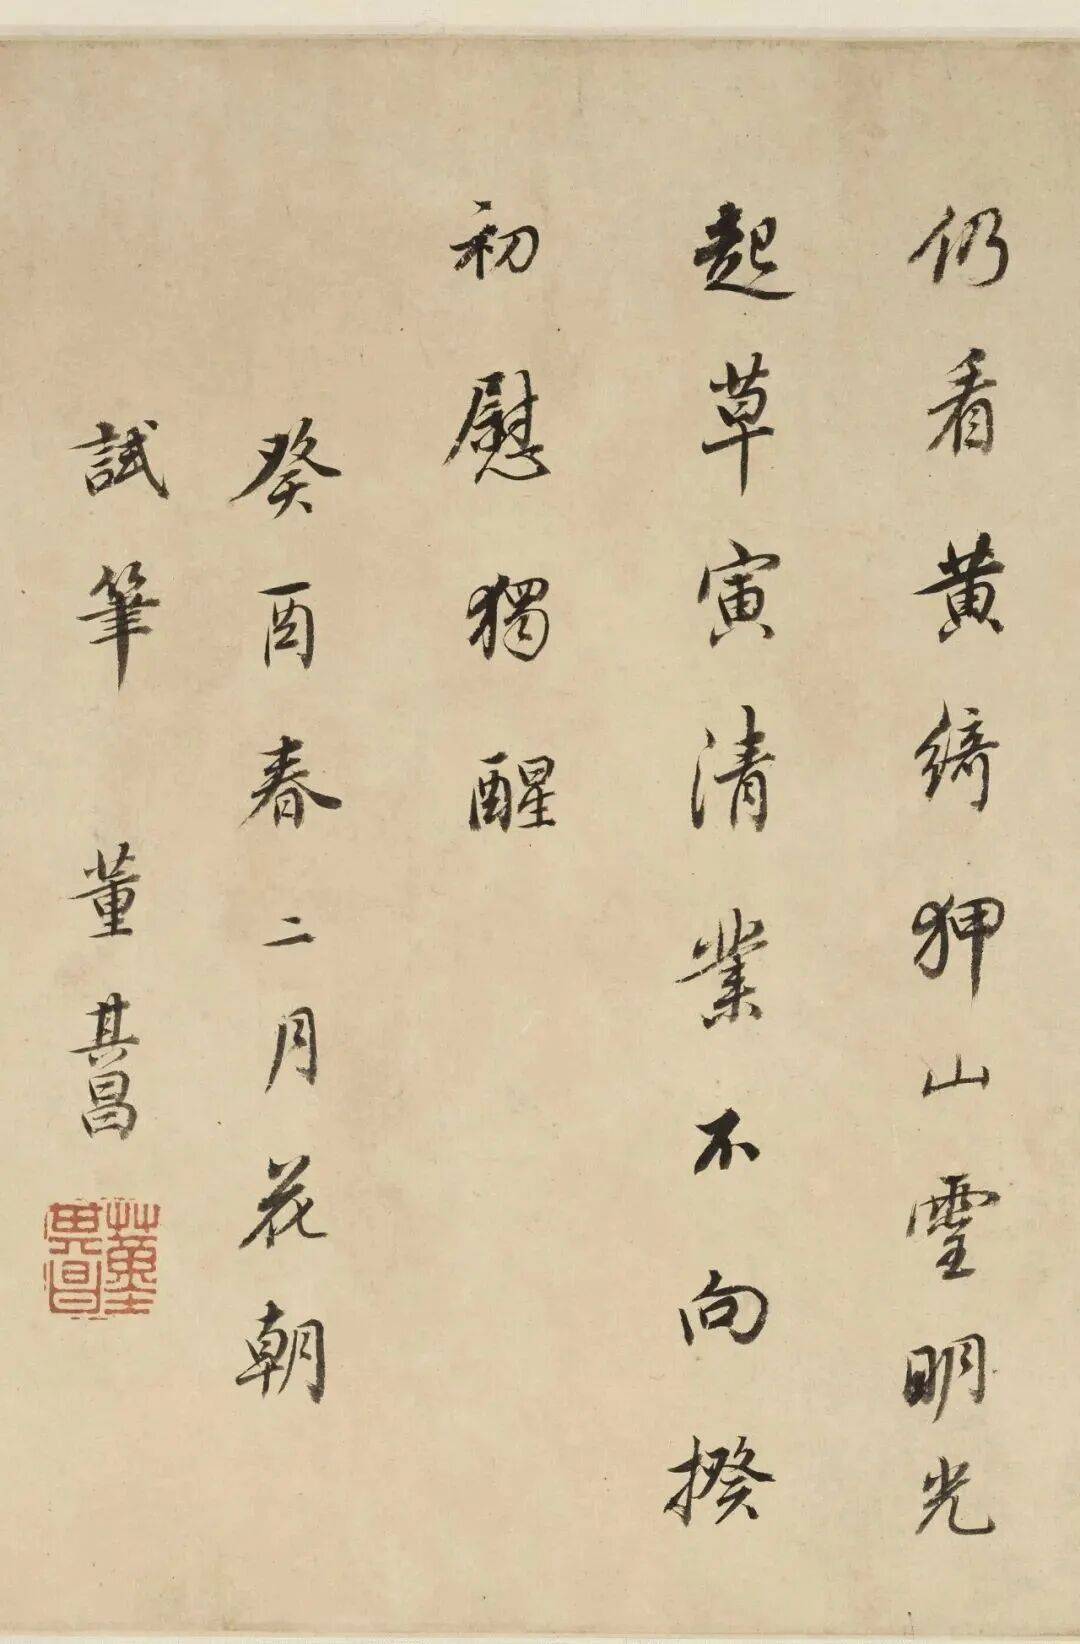 仍看黃綺狎山靈明光
起草寅清業不向揆
初慰獨醒
癸酉春二月花朝
試筆 董其昌
董其昌